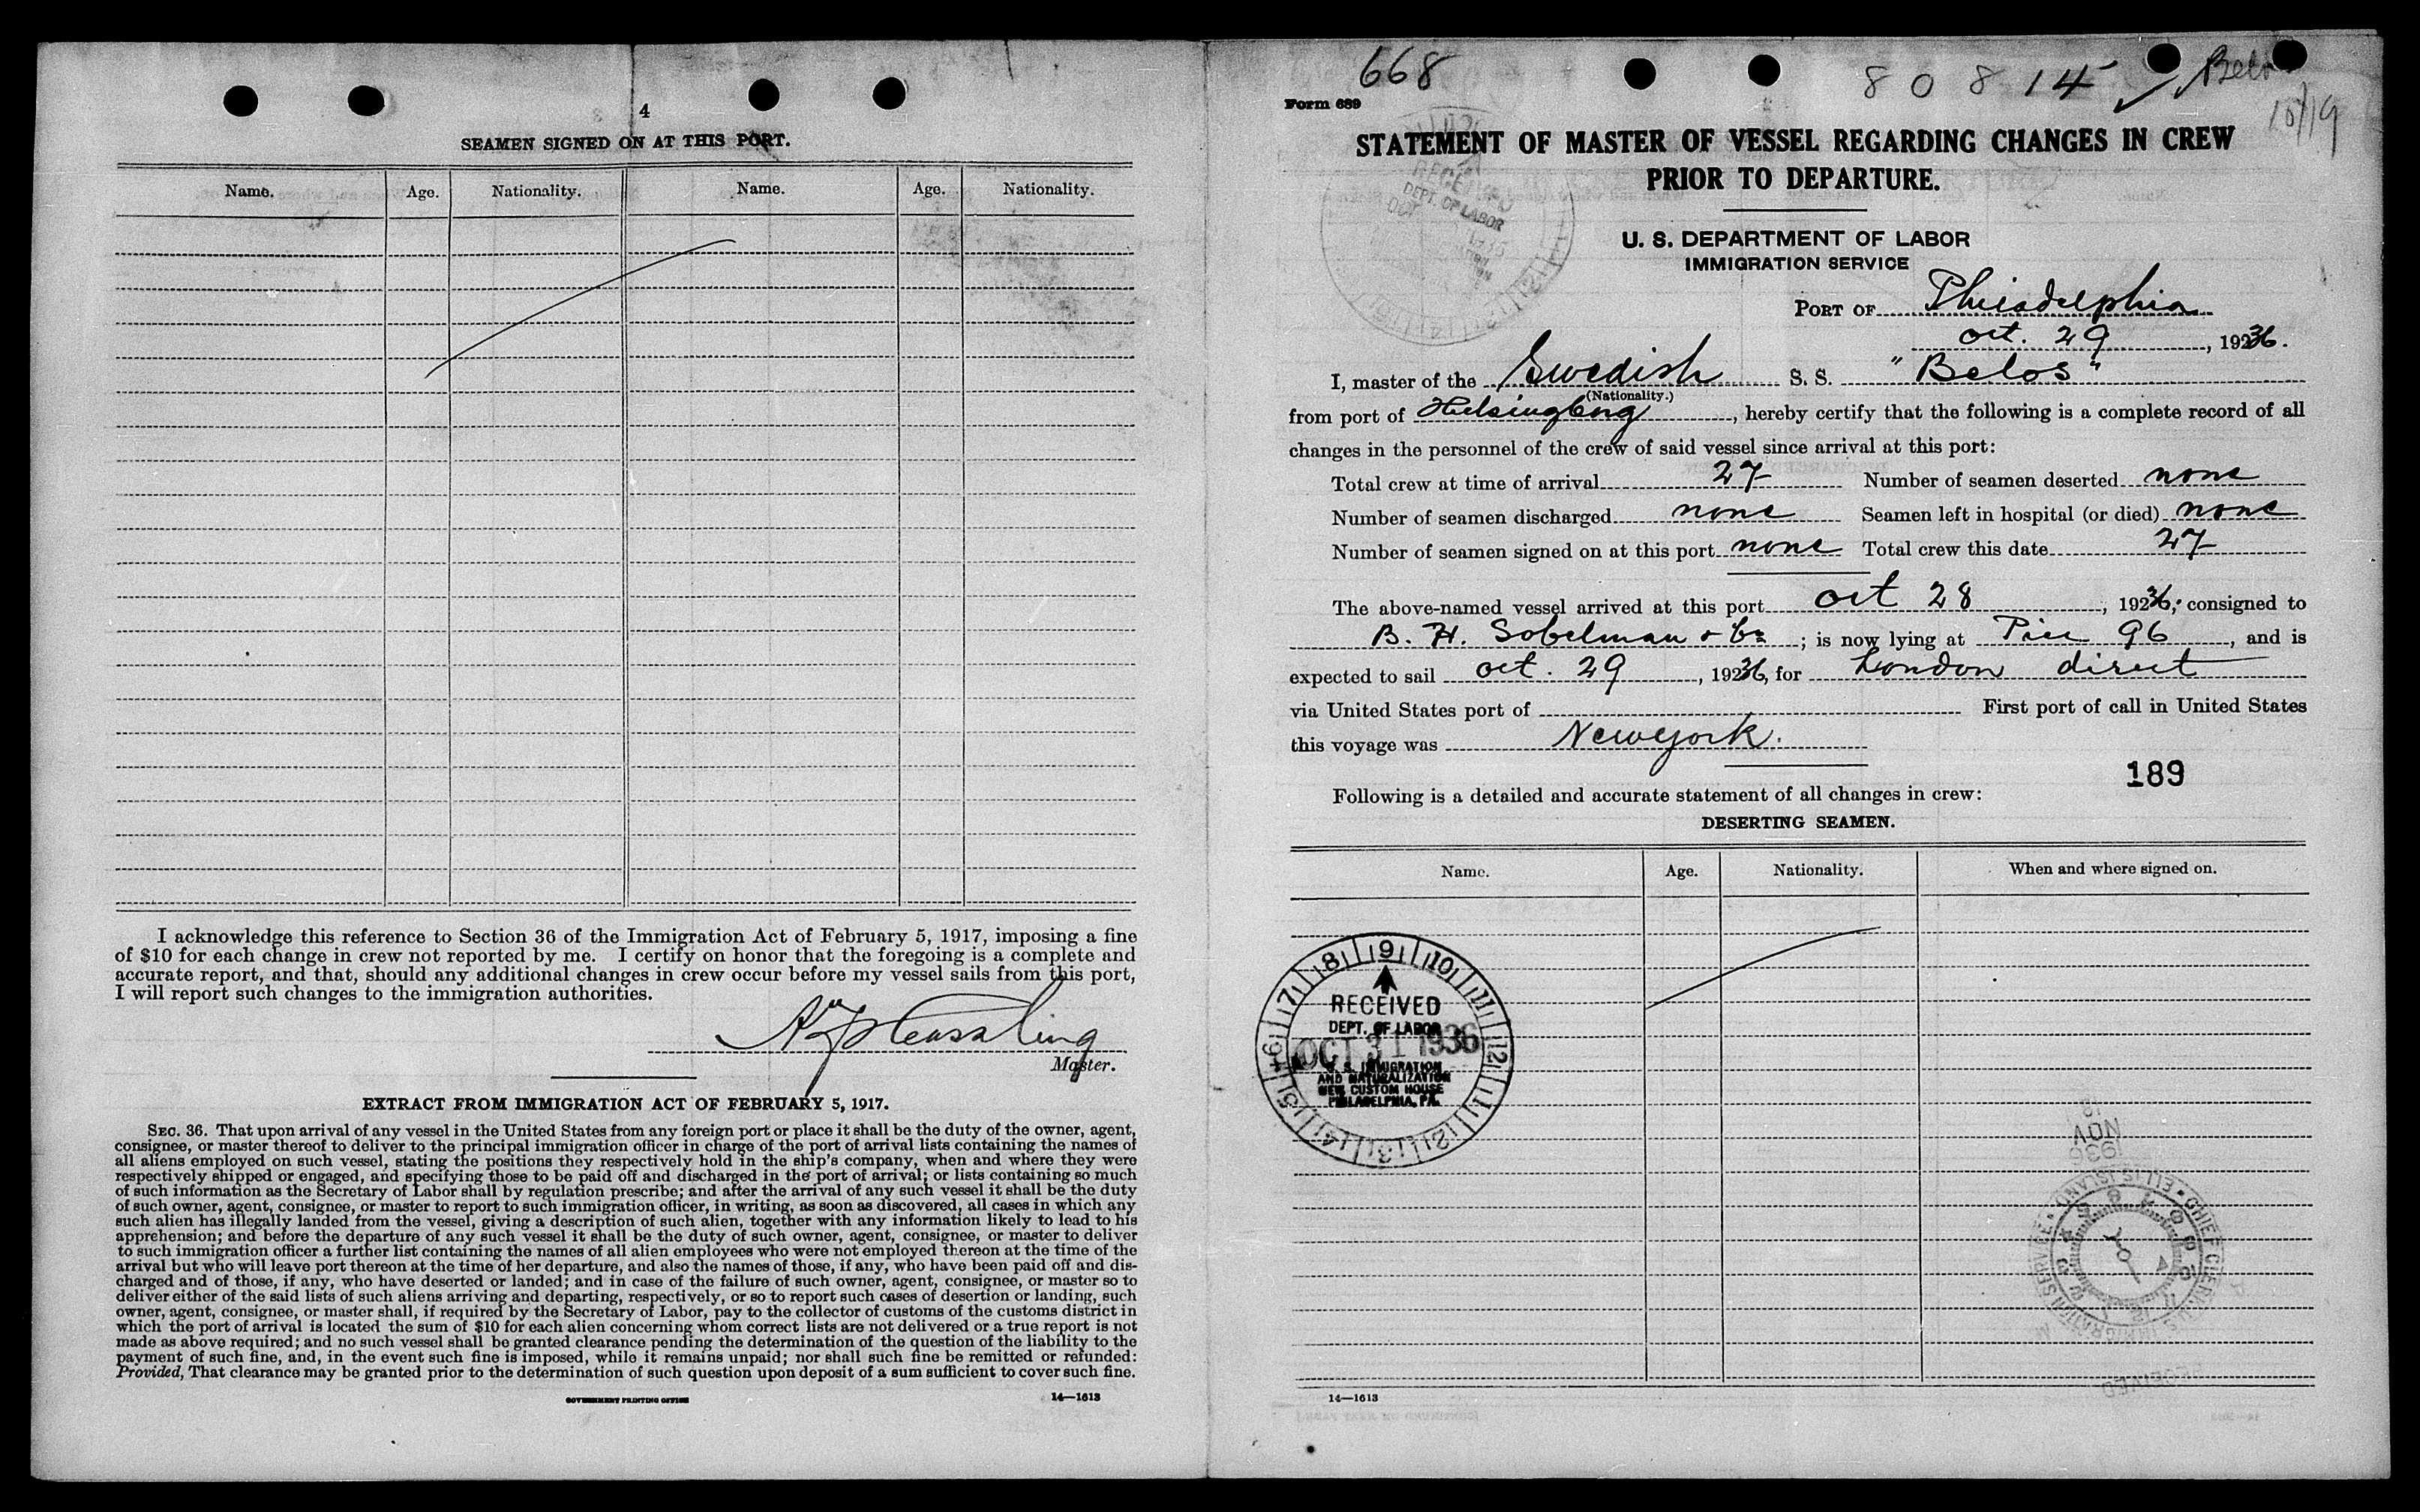 4
SEAMEN SIGNED ON AT THIS PORT.
Name. Age. Nationality. Name. Age. Nationality.
I acknowledge this reference to Section 36 of the Immigration Act of February 5, 1917, imposing a fine
of $10 for each change in crew not reported by me. I certify on honor that the foregoing is a complete and
accurate report, and that, should any additional changes in crew occur before my vessel sails from this port,
I will report such changes to the immigration authorities.
Master.
EXTRACT FROM IMMIGRATION ACT OF FEBRUARY 5, 1917.
SEC. 36. That upon arrival of any vessel in the United States from any foreign port or place it shall be the duty of the owner, agent,
consignee, or master thereof to deliver to the principal immigration officer in charge of the port of arrival lists containing the names of
all aliens employed on such vessel, stating the positions they respectively hold in the ship's company, when and where they were
respectively shipped or engaged, and specifying those to be paid off and discharged in the port of arrival; or lists containing so much
of such information as the Secretary of Labor shall by regulation prescribe; and after the arrival of any such vessel it shall be the duty
of such owner, agent, consignee, or master to report to such immigration officer, in writing, as soon as discovered, all cases in which any
such alien has illegally landed from the vessel, giving a description of such alien, together with any information likely to lead to his
apprehension; and before the departure of any such vessel it shall be the duty of such owner, agent, consignee, or master to deliver
to such immigration officer a further list containing the names of all alien employees who were not employed thereon at the time of the
arrival but who will leave port thereon at the time of her departure, and also the names of those, if any, who have been paid off and dis-
charged and of those, if any, who have deserted or landed; and in case of the failure of such owner, agent, consignee, or master so to
deliver either of the said lists of such aliens arriving and departing, respectively, or so to report such cases of desertion or landing, such
owner, agent, consignee, or master shall, if required by the Secretary of Labor, pay to the collector of customs of the customs district in
which the port of arrival is located the sum of $10 for each alien concerning whom correct lists are not delivered or a true report is not
made as above required; and no such vessel shall be granted clearance pending the determination of the question of the liability to the
payment of such fine, and, in the event such fine is imposed, while it remains unpaid; nor shall such fine be remitted or refunded:
Provided, That clearance may be granted prior to the determination of such question upon deposit of a sum sufficient to cover such fine.
GOVERNMENT PRINTING OFFICE 14—1613
668 80814 Belos
10/19
Form 689
STATEMENT OF MASTER OF VESSEL REGARDING CHANGES IN CREW
PRIOR TO DEPARTURE.
U. S. DEPARTMENT OF LABOR
IMMIGRATION SERVICE
PORT OF Philadelphia
Oct. 29, 1936.
I, master of the Swedish S. S. "Belos"
(Nationality.)
from port of Helsingborg, hereby certify that the following is a complete record of all
changes in the personnel of the crew of said vessel since arrival at this port:
Total crew at time of arrival 27 Number of seamen deserted none
Number of seamen discharged none Seamen left in hospital (or died) none
Number of seamen signed on at this port none Total crew this date 27
The above-named vessel arrived at this port Oct 28, 1936, consigned to
B. H. Sobelman & Co; is now lying at Pier 96, and is
expected to sail Oct. 29, 1936, for London direct
via United States port of First port of call in United States
this voyage was New York.
189
Following is a detailed and accurate statement of all changes in crew:
DESERTING SEAMEN.
Name. Age. Nationality. When and where signed on.
RECEIVED
DEPT. OF LABOR
OCT 31 1936
U. S. IMMIGRATION
AND NATURALIZATION
NEW CUSTOM HOUSE
PHILADELPHIA, PA.
NOV
1936
CHIEF CLERK U.S. IMMIGRATION SERVICE • ELLIS ISLAND
RECEIVED
14—1613